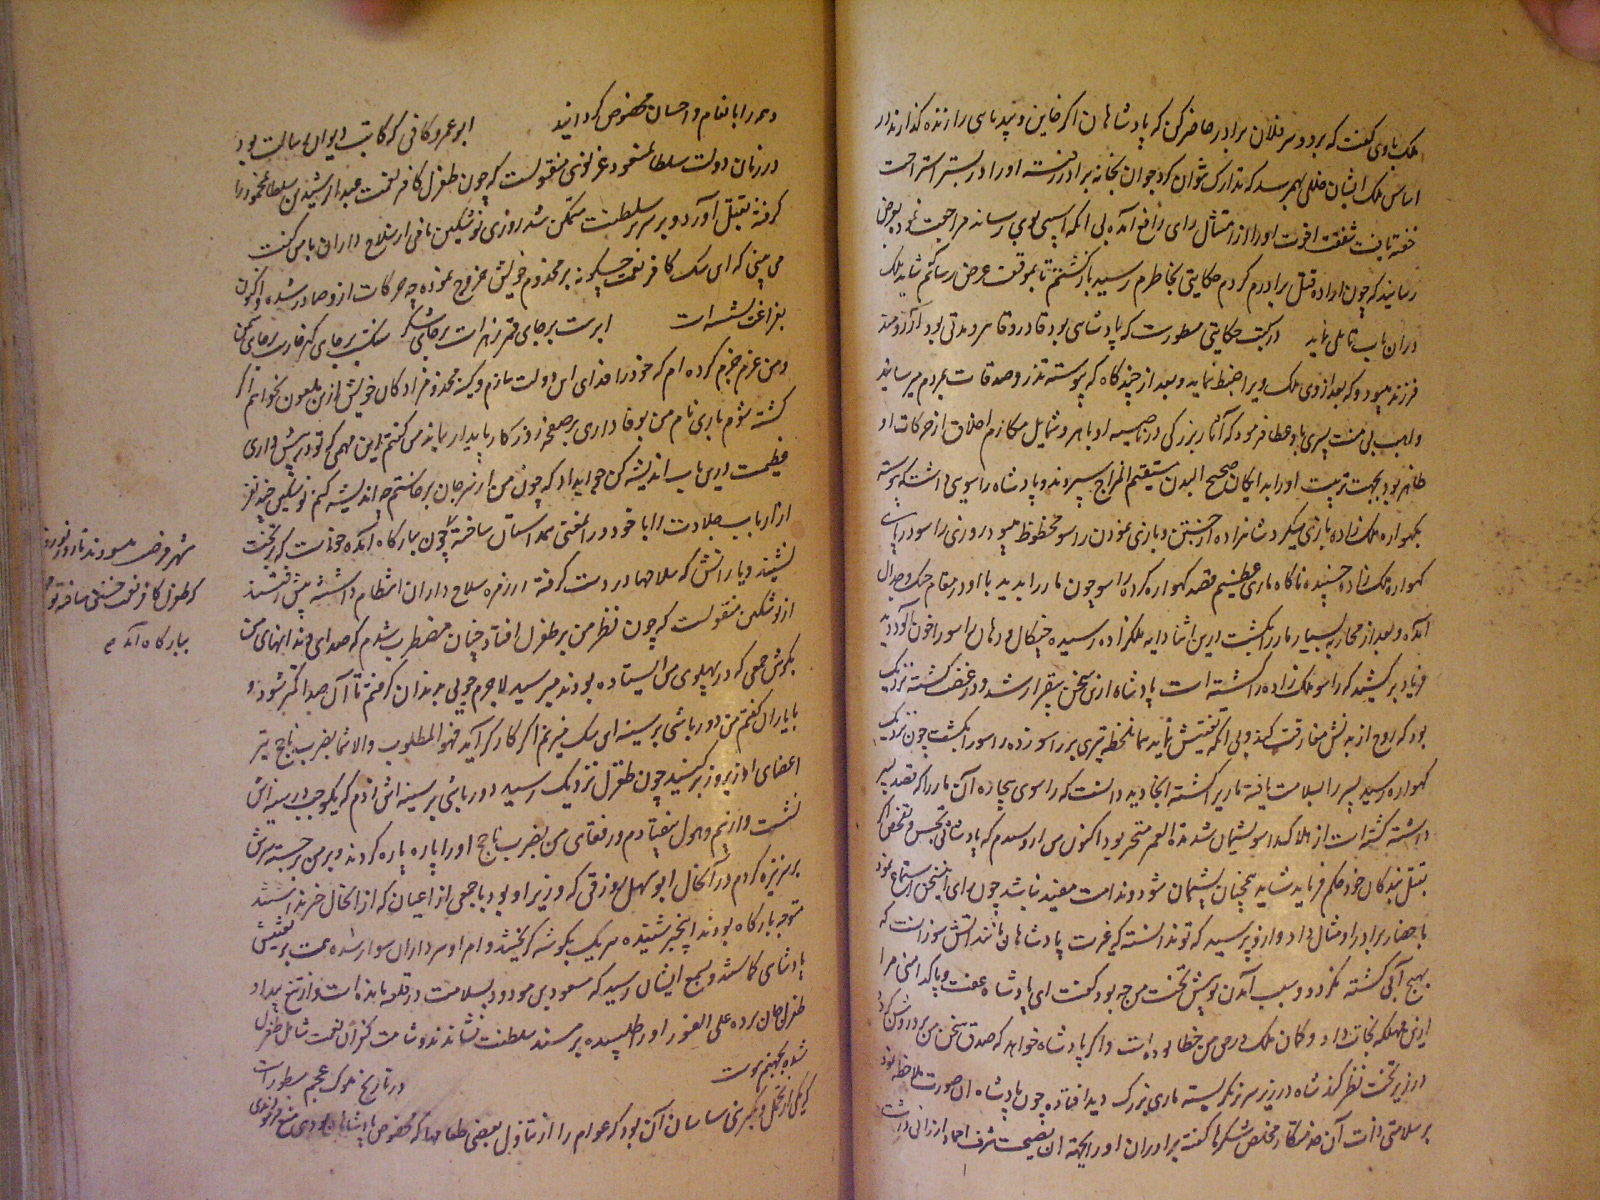 ملک باوی گفت که برو و سر فلان برادر حاضر کن که پادشاهان اگر خاین و بدسپاسی را زنده گذارند در
اساس ملک ایشان خللی بهم رسد که تدارک نتوان کرد جوان بخانه برادر رفته او را در بستر استراحت
خفته یافت شفقت اخوت او را از امتثال رای مانع آمده بی آنکه آسیبی بوی رساند مراجعت نموده بعرض
رسانید که چون اراده قتل برادرم کردم حکایتی بخاطرم رسید بازگشتم تا بموقف عرض رسانم شاید ملک
در آن باب تاملی نماید در کتب حکایتی مسطورست که پادشاهی بود قادر و قاهر و مدتی بود آرزومند
فرزند میبود که بعد از وی ملک ویرا ضبط نماید و بعد از چندگاه که پیوسته نذر و صدقات بمردم میرسانید
واهب بی منت پسری باو عطا فرمود که آثار بزرگی در ناصیه او باهر و شمایل مکارم اخلاق از حرکات او
ظاهر بود بجهت تربیت او را بدایگان صحیح البدن مستقیم المزاج سپردند و پادشاه راسوی داشت که پیوسته
بگهواره ملک زاده بازی میکرد شاهزاده از جستن و بازی نمودن راسو محظوظ میبود روزی راسو در پای
گهواره ملک زاده خسپیده ناگاه ماری عظیم قصد گهواره کرد راسو چون مار را بدید با او در مقام جنگ و جدال
آمده و بعد از محاربه بسیار مار را بکشت درین اثنا دایه ملکزاده رسیده چنگال و دهان راسو را خون آلود دید
فریاد برکشید که راسو ملک زاده را کشته است پادشاه ازین سخن بیقرار شد و در غضب گشته نزدیک
بود که روح از بدنش مفارقت کند و بی آنکه تفتیش نماید همان لحظه تبری بر راسو زده راسو را بکشت چون نزدیک
گهواره رسید پسر را بسلامت یافته مار را کشته آنجا دید دانست که راسوی بیچاره آن مار را که قصد پسر
داشته کشته است از هلاک راسو پشیمان شد مدة العمر متحیر بود اکنون من از آن ترسیدم که پادشاه بی تجسس و تفحص اگر
بقتل بندگان خود حکم فرماید شاید همچنان پشیمان شود و ندامت مفید نباشد چون رای این سخن استماع نمود
باحضار برادر او مثال داد و از وی پرسید که تو ندانسته که غیرت پادشاهان مانند آتش سوزانست که
بهیچ آبی کشته نگردد و سبب آمدن تو پیش تخت من چه بود گفت ای پادشاه عفت و پاکدامنی مرا
ازین مهلکه نجات داد و گمان ملک در حق من خطا بوده است و اگر پادشاه خواهد که صدق سخن من برو روشن گردد
در زیر تخت نظر کند شاه در زیر سریر نگریسته ماری بزرگ دید افتاده چون پادشاه آن صورت ملاحظه نمود
بر سلامتی ذات آن خدمتکار مخلص شکرها گفته برادران او را بجهت آن نصیحت شرف احماد ارزانی داشت
و همه را بانعام و احسان مخصوص گردانید ابو عمرو کافی که کاتب دیوان رسالت بود
در زمان دولت سلطان مسعود غزنوی منقولست که چون طغرل کافر نعمت عبدالرشید بن سلطان محمود را
گرفته بقتل آورد و بر سریر سلطنت متمکن شد روزی نوشتگین نامی از سلاح داران با من گفت
می بینی که این سگ کافر نعمت چگونه بر مخدوم خویش خروج نموده چه حرکات ازو صادر شده و اکنون
بفراغت نشسته است ابرست بر جای قمر زهرست بر جای شکر سنگست بر جای گهر خارست بر جای سمن
و من عزم جزم کرده ام که خود را فدای این دولت سازم و کینه مخدوم زادگان خویش ازین ملعون بخواهم اگر
کشته شوم باری نام من بوفاداری بر صفحه روزگار پایدار بماند من گفتم این مهمی که تو در پیش داری
عظیمست درین باب اندیشه کن جواب داد که چون من از سر جان برخاستم چه اندیشه کنم نوشتگین چند نفر
از ارباب جلادت را با خود درین معنی همداستان ساخته چون ببارگاه آمده خواست که بر تخت
نشیند و یارانش که سلاحها در دست گرفته در زمره سلاح داران انتظام داشتند پیش رفتند
از نوشتگین منقولست که چون نظر من بر طغرل افتاد چنان مضطرب شدم که صدای دندانهای من
بگوش جمعی که در پهلوی من ایستاده بودند میرسید لاجرم چوبی بدندان گرفتم تا آن صدا کمتر شود و
با یاران گفتم من دورباشی بر سینه این سگ میزنم اگر کارگر آید فهو المطلوب والا شما بضرب ناچخ و تبر
اعضای او از یکدیگر جدا کنید چون طغرل نزدیک رسید دورباشی بر سینه اش زدم که یک وجب در سینه اش
نشست و از بیم و هول بیفتادم و رفقای من بضرب ناچخ او را پاره پاره کردند و من برجسته سرش
بر نیزه کردم در آن حال ابو سهل زوزنی که وزیر او بود با جمعی از اعیان که از آن حال خبر نداشتند
متوجه بارگاه بودند این خبر شنیده هر یک بگوشه گریختند و امرا و سرداران سوار شده همت بر تفتیش
پادشاهی گماشتند و بسمع ایشان رسید که مسعود بن مودود بسلامت در قلعه مانده است و از تیغ بیداد
طغرل جان برده علی الفور او را طلبیده بر مسند سلطنت نشاندند و شامت کفران نعمت شامل طغرل
شده بجهنم پیوست در تاریخ ملوک عجم مسطورست
که یکی از تجمل و تکبر بنی ساسان آن بود که عوام را از تناول بعضی طعامها که مخصوص پادشاهان بودی منع فرمودندی
بیارگاه آمد